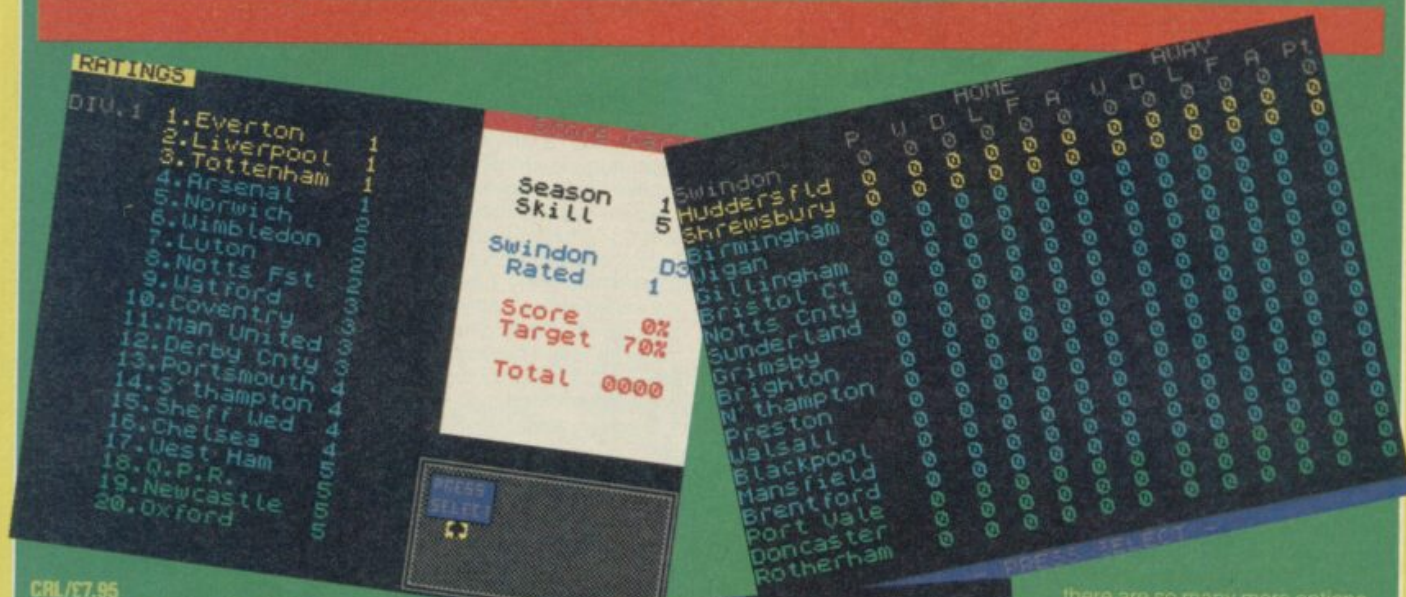 RATINGS
DIV.1
1.Everton 1
2.Liverpool 1
3.Tottenham 1
4.Arsenal 1
5.Norwich 2
6.Wimbledon 2
7.Luton 2
8.Notts Fst 2
9.Watford 3
10.Coventry 3
11.Man United 3
12.Derby Cnty 3
13.Portsmouth 4
14.S'thampton 4
15.Sheff Wed 4
16.Chelsea 4
17.West Ham 5
18.Q.P.R. 5
19.Newcastle 5
20.Oxford 5
Season 1
Skill 5
Swindon D3
Rated 1
Score 0%
Target 70%
Total 0000
PRESS
SELECT
HOME AWAY
P W D L F A W D L F A Pt
Swindon 0 0 0 0 0 0 0 0 0 0 0 0
Huddersfld 0 0 0 0 0 0 0 0 0 0 0 0
Shrewsbury 0 0 0 0 0 0 0 0 0 0 0 0
Birmingham 0 0 0 0 0 0 0 0 0 0 0 0
Wigan 0 0 0 0 0 0 0 0 0 0 0 0
Gillingham 0 0 0 0 0 0 0 0 0 0 0 0
Bristol Ct 0 0 0 0 0 0 0 0 0 0 0 0
Notts Cnty 0 0 0 0 0 0 0 0 0 0 0 0
Sunderland 0 0 0 0 0 0 0 0 0 0 0 0
Grimsby 0 0 0 0 0 0 0 0 0 0 0 0
Brighton 0 0 0 0 0 0 0 0 0 0 0 0
N'thampton 0 0 0 0 0 0 0 0 0 0 0 0
Preston 0 0 0 0 0 0 0 0 0 0 0 0
Walsall 0 0 0 0 0 0 0 0 0 0 0 0
Blackpool 0 0 0 0 0 0 0 0 0 0 0 0
Mansfield 0 0 0 0 0 0 0 0 0 0 0 0
Brentford 0 0 0 0 0 0 0 0 0 0 0 0
Port Vale 0 0 0 0 0 0 0 0 0 0 0 0
Doncaster 0 0 0 0 0 0 0 0 0 0 0 0
Rotherham 0 0 0 0 0 0 0 0 0 0 0 0
- PRESS SELECT -
CRL/£7.95
there are so many more options